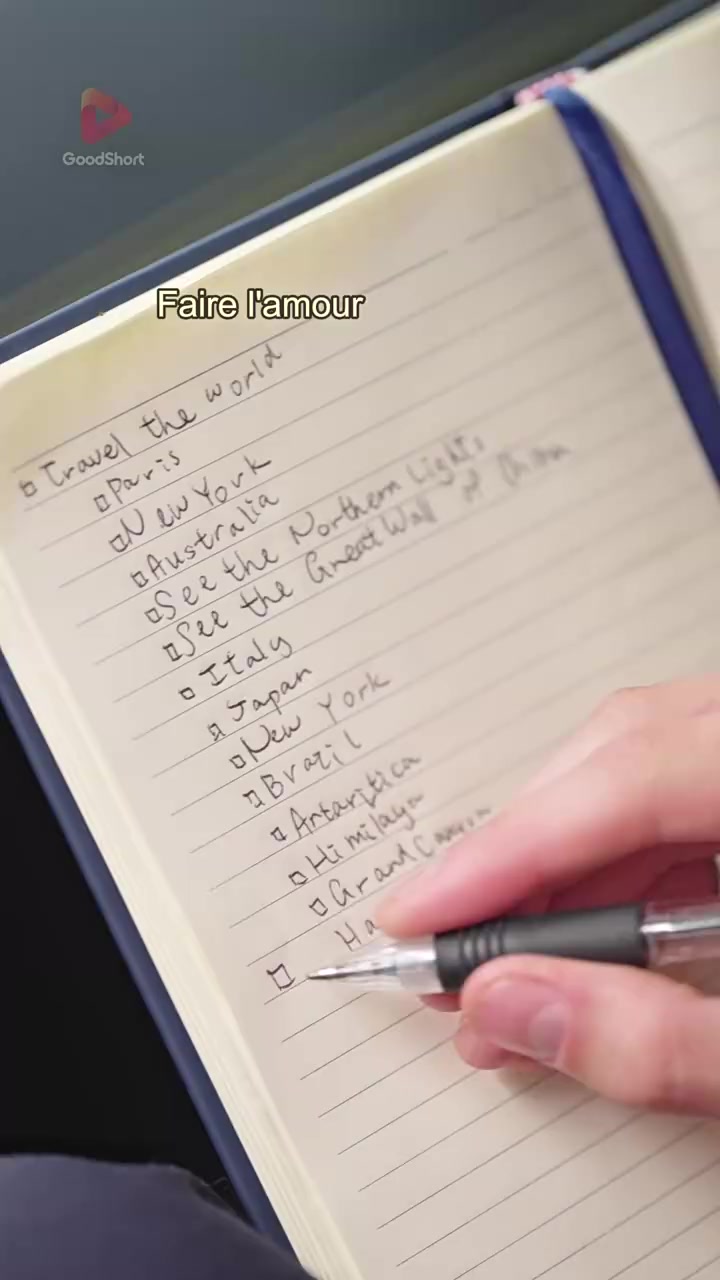 GoodShort
Faire l'amour
Travel the world
Paris
New York
Australia
See the Northern Lights
See the Great Wall of China
Italy
Japan
New York
Brazil
Antartica
Himilaya
Grand Canyon
Ha